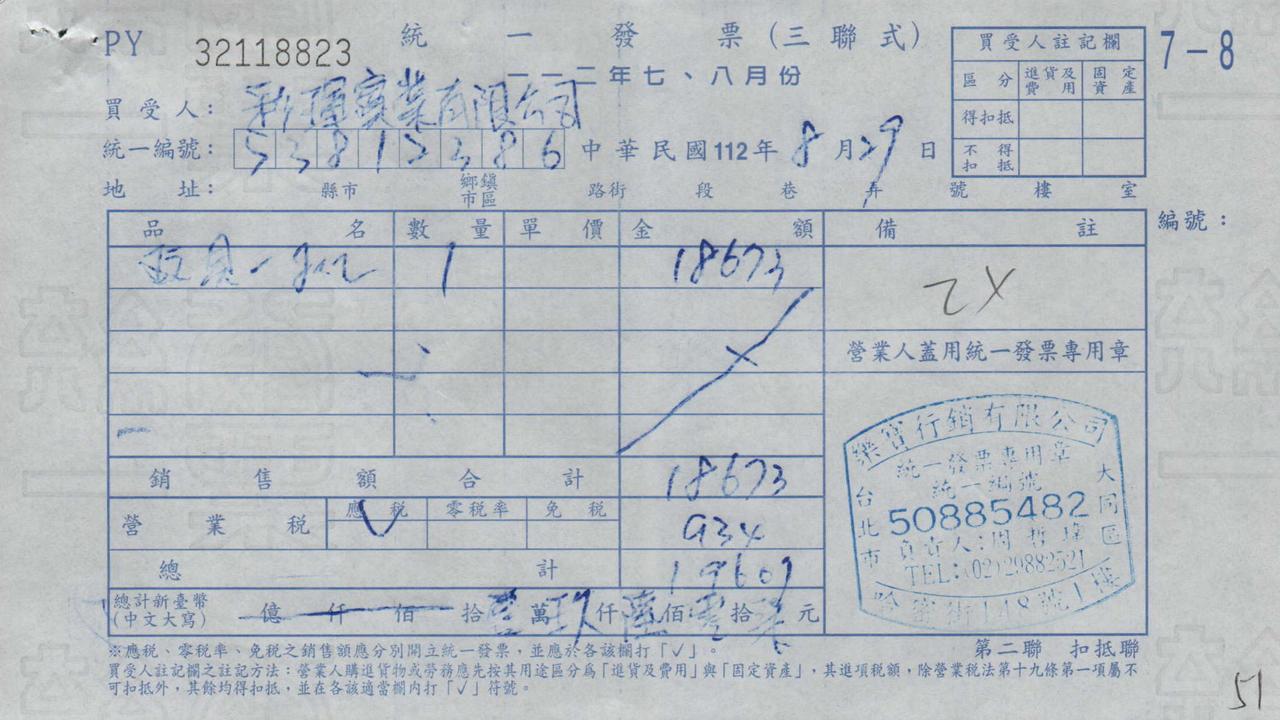 PY 32118823 統一發票(三聯式) 7-8
一一二年七、八月份
買受人: 實業有限公司
統一編號: 53812386 中華民國112年8月29日
地址: 縣市 鄉鎮市區 路街 段 巷 弄 號 樓 室
買受人註記欄
區分 進貨及費用 固定資產
得扣抵
不得扣抵
編號:
品名 數量 單價 金額 備註
1 18673
營業人蓋用統一發票專用章
銷售額合計 18673
營業稅 應稅 V 零稅率 免稅 934
總計 19607
總計新臺幣(中文大寫) 億 仟 佰 拾壹萬玖仟陸佰零拾柒元
樂寶行銷有限公司
統一發票專用章
統一編號
50885482
負責人:周哲瑋
TEL:(02)29882521
台北市 大同區
哈密街148號1樓
※應稅、零稅率、免稅之銷售額應分別開立統一發票,並應於各該欄打「✓」。
第二聯 扣抵聯
買受人註記欄之註記方法:營業人購進貨物或勞務應先按其用途區分為「進貨及費用」與「固定資產」,其進項稅額,除營業稅法第十九條第一項屬不
可扣抵外,其餘均得扣抵,並在各該適當欄內打「✓」符號。
51